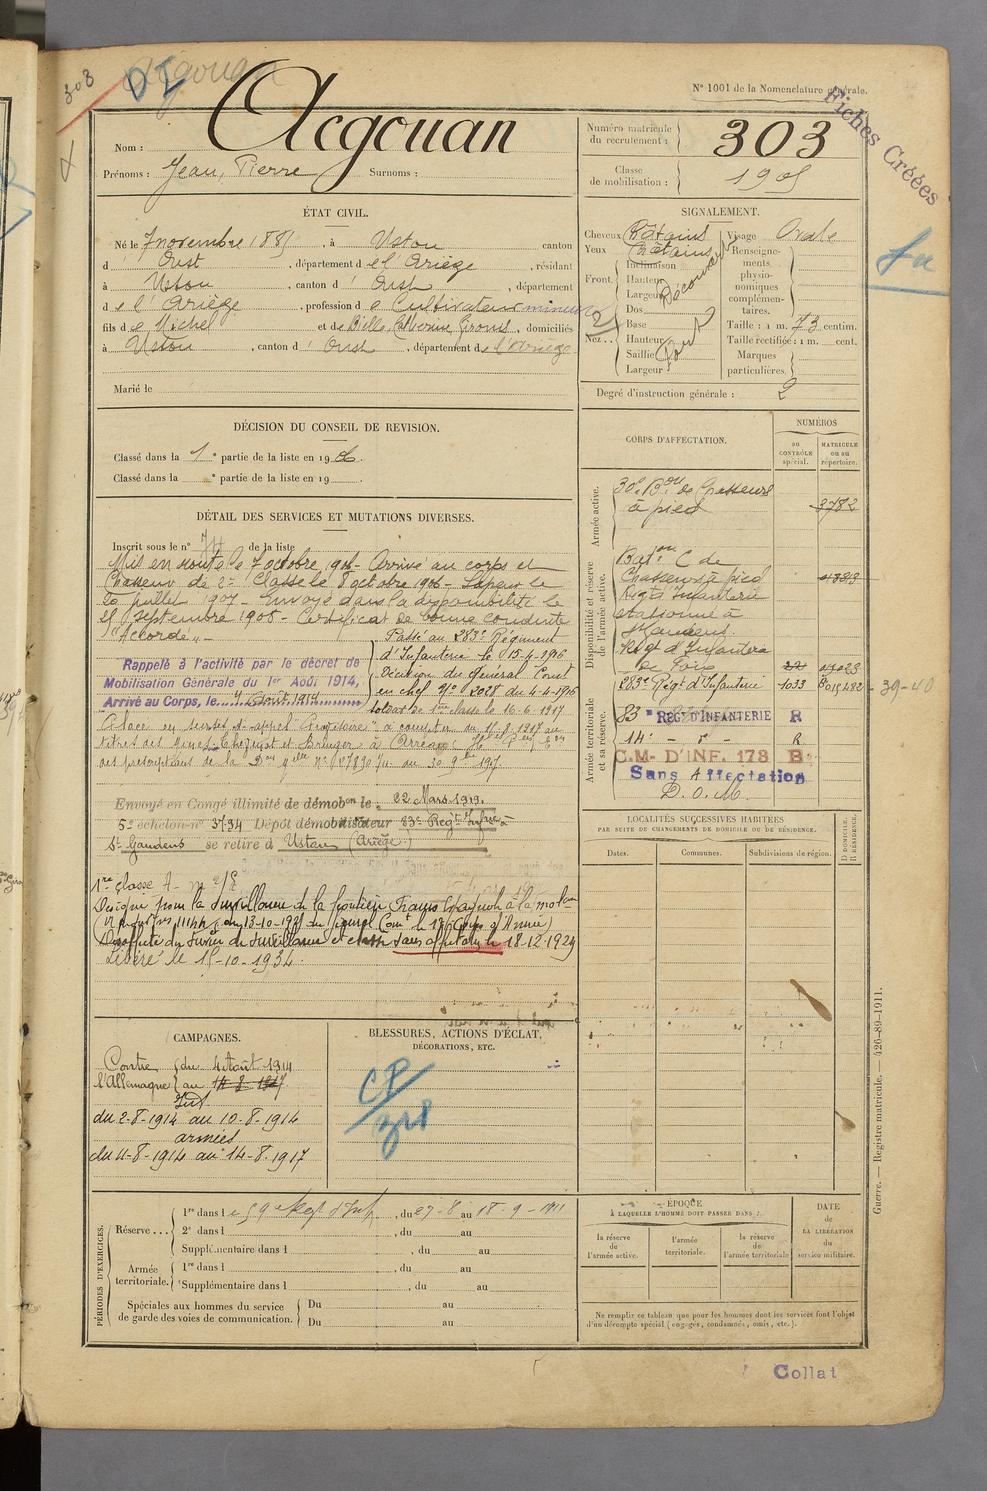 303
N° 1001 de la Nomenclature générale.
Fiches Créées
Nom : Acgouan
Prénoms : Jean, Pierre Surnoms :
Numéro matricule du recrutement : 303
Classe de mobilisation : 1905
ÉTAT CIVIL.
Né le 7 novembre 1885, à Ustou canton
d' Oust, département de l'Ariège, résidant
à Ustou, canton d' Oust, département
de l'Ariège, profession de Cultivateur mineur
fils de Michel et de Bille, Catherine, domiciliés
à Ustou, canton d' Oust, département de l'Ariège
Marié le
SIGNALEMENT.
Cheveux Châtains
Yeux Châtains
Front. Inclinaison
Hauteur
Largeur
Découvert
Nez.. Dos
Base
Hauteur
Saillie
Largeur
Fort
Visage Ovale
Renseignements physionomiques complémentaires.
Taille : 1 m. 73 centim.
Taille rectifiée : 1 m. cent.
Marques particulières.
Degré d'instruction générale : 2
DÉCISION DU CONSEIL DE REVISION.
Classé dans la 1e partie de la liste en 1906.
Classé dans la e partie de la liste en 19
DÉTAIL DES SERVICES ET MUTATIONS DIVERSES.
Inscrit sous le n° de la liste
Mis en route le 7 octobre 1906 - Arrivé au corps et
Chasseur de 2e Classe le 8 octobre 1906 - Sapeur le
20 juillet 1907 - Envoyé dans la disponibilité le
25 Septembre 1908 - Certificat de bonne conduite
"Accordé"
Passé au 283e Régiment
d'Infanterie le 15-4-1916
Décision du Général Comt
en chef n° 2028 du 4-4-1916
Soldat de 1ère classe le 16-6-1917
Rappelé à l'activité par le décret de
Mobilisation Générale du 1er Août 1914,
Arrivé au Corps, le 4 Août 1914
Placé en sursis d'appel à compter du 15.8.1917 au
titre des mines à Arreau
Envoyé en Congé illimité de démobon le : 22 Mars 1919.
5e échelon n° 3734 Dépôt démobilisateur 83e Regt Infrie à
St Gaudens se retire à Ustou (Ariège)
1re classe A
Désigné pour la surveillance de la frontière Franco Espagnole
Désaffecté du service de surveillance et classé sans affectation le 18-12-1929
Libéré le 15-10-1934.
CORPS D'AFFECTATION.
NUMÉROS
au CONTRÔLE spécial.
MATRICULE ou au répertoire.
Armée active.
30e Bon de Chasseurs
à pied 3782
Disponibilité et réserve de l'armée active.
Baton C de
Chasseurs à pied
Regt d'Infanterie
stationné à
St Gaudens.
Regt d'Infanterie
de Foix
283e Regt d'Infanterie 1033
39-40
Armée territoriale et sa réserve.
83e REGt D'INFANTERIE R
14e - d° - R
C.M. D'INF. 173 B
Sans Affectation
D.O.M.
LOCALITÉS SUCCESSIVES HABITÉES
PAR SUITE DE CHANGEMENTS DE DOMICILE OU DE RÉSIDENCE.
Dates. Communes. Subdivisions de région.
D DOMICILE. R RÉSIDENCE.
CAMPAGNES.
Contre l'Allemagne du 4 Août 1914
au 14-8-1917
Int
du 2-8-1914 au 10-8-1914
armées
du 11-8-1914 au 14-8-1917
BLESSURES, ACTIONS D'ÉCLAT,
DÉCORATIONS, ETC.
CP
328
PÉRIODES D'EXERCICES.
Réserve ... 1re dans le 59e Regt d'Inf, du 27-8 au 18-9-1911
2e dans l , du au
Supplémentaire dans l , du au
Armée territoriale. 1re dans l , du au
Supplémentaire dans l , du au
Spéciales aux hommes du service de garde des voies de communication. Du au
Du au
ÉPOQUE
À LAQUELLE L'HOMME DOIT PASSER DANS :
la réserve de l'armée active.
l'armée territoriale.
la réserve de l'armée territoriale
DATE de LA LIBÉRATION du service militaire.
Ne remplir ce tableau que pour les hommes dont les services font l'objet
d'un décompte spécial (engagés, condamnés, omis, etc.).
Guerre. — Registre matricule. — 426-89-1911.
Collat